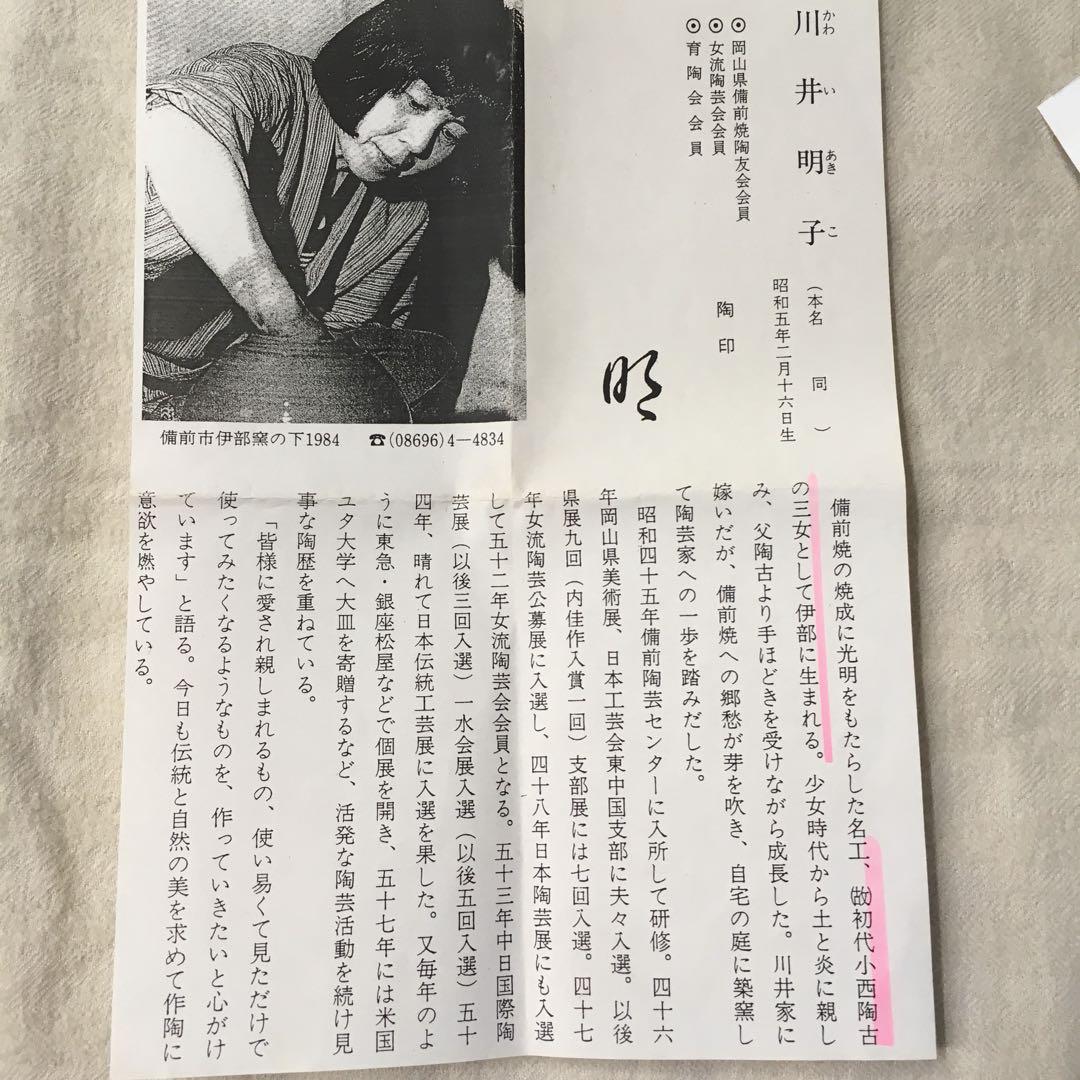 川井明子
かわいあきこ
(本名 同)
昭和五年二月十六日生
⦿岡山県備前焼陶友会会員
⦿女流陶芸会会員
⦿育陶会会員
陶印
明
備前市伊部窯の下1984 ☎(08696)4—4834
備前焼の焼成に光明をもたらした名工、㈱初代小西陶古
の三女として伊部に生まれる。少女時代から土と炎に親し
み、父陶古より手ほどきを受けながら成長した。川井家に
嫁いだが、備前焼への郷愁が芽を吹き、自宅の庭に築窯し
て陶芸家への一歩を踏みだした。
昭和四十五年備前陶芸センターに入所して研修。四十六
年岡山県美術展、日本工芸会東中国支部に夫々入選。以後
県展九回(内佳作入賞一回)支部展には七回入選。四十七
年女流陶芸公募展に入選し、四十八年日本陶芸展にも入選
して五十二年女流陶芸会会員となる。五十三年中日国際陶
芸展(以後三回入選)一水会展入選(以後五回入選)五十
四年、晴れて日本伝統工芸展に入選を果した。又毎年のよ
うに東急・銀座松屋などで個展を開き、五十七年には米国
ユタ大学へ大皿を寄贈するなど、活発な陶芸活動を続け見
事な陶歴を重ねている。
「皆様に愛され親しまれるもの、使い易くて見ただけで
使ってみたくなるようなものを、作っていきたいと心がけ
ています」と語る。今日も伝統と自然の美を求めて作陶に
意欲を燃やしている。